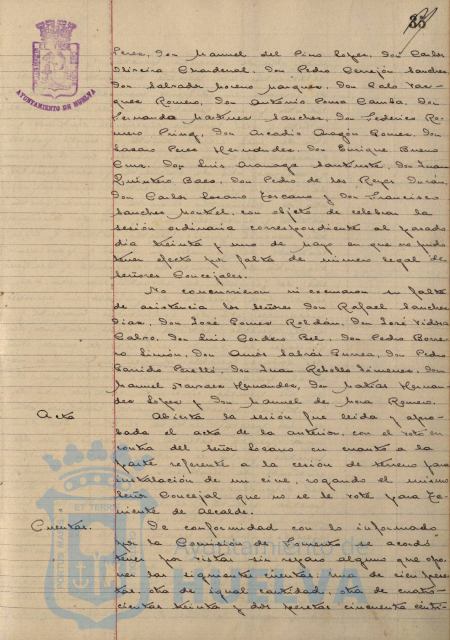 35
AYUNTAMIENTO DE HUELVA
Perez, don Manuel del Pino Lopez, don Carlos
Oliveira Chardenal, don Pedro Cerrejón Sanchez
don Salvador Moreno Marquez, don Galo Vaz-
quez Romero, don Antonio Pousa Camba, don
Fernando Martinez Sanchez, don Federico Ro-
mero Perez, don Arcadio Aragón Gomez, don
Lazaro Perez Hernandez, don Enrique Bueno
Cruz, don Luis Aranaga Santiuste, don Juan
Quintero Baez, don Pedro de los Reyes Durán,
don Carlos Lozano Toscano y don Francisco
Sanchez Montiel, con objeto de celebrar la
sesión ordinaria correspondiente al pasado
dia treinta y uno de mayo en que no pudo
tener efecto por falta de número legal de
señores Concejales.
No concurrieron ni excusaron su falta
de asistencia los señores don Rafael Sanchez
Diaz, don José Gomez Roldán, don José Vidra
Calvo, don Luis Cordero Bel, don Pedro Borre-
ro Limón, don Amós Sabrás Gurrea, don Pedro
Garrido Perelló, don Juan Rebollo Jimenez, don
Manuel Narvaez Hernandez, don Matias Hernan-
dez Lopez y don Manuel de Mora Romero.
Acta
Abierta la sesión fue leida y apro-
bada el acta de la anterior, con el voto en
contra del señor Lozano en cuanto a la
parte referente a la cesión de terreno para
instalación de un cine, rogando el mismo
señor Concejal que no se le vote para Te-
niente de Alcalde.
Cuentas.
De conformidad con lo informado
por la Comisión de Fomento se acordó
tener por vistas sin reparo alguno que opo-
ner las siguientes cuentas: una de cien pese-
tas, otra de igual cantidad, otra de cuatro-
cientas treinta y dos pesetas cincuenta cénti-
Ayuntamiento de
HUELVA